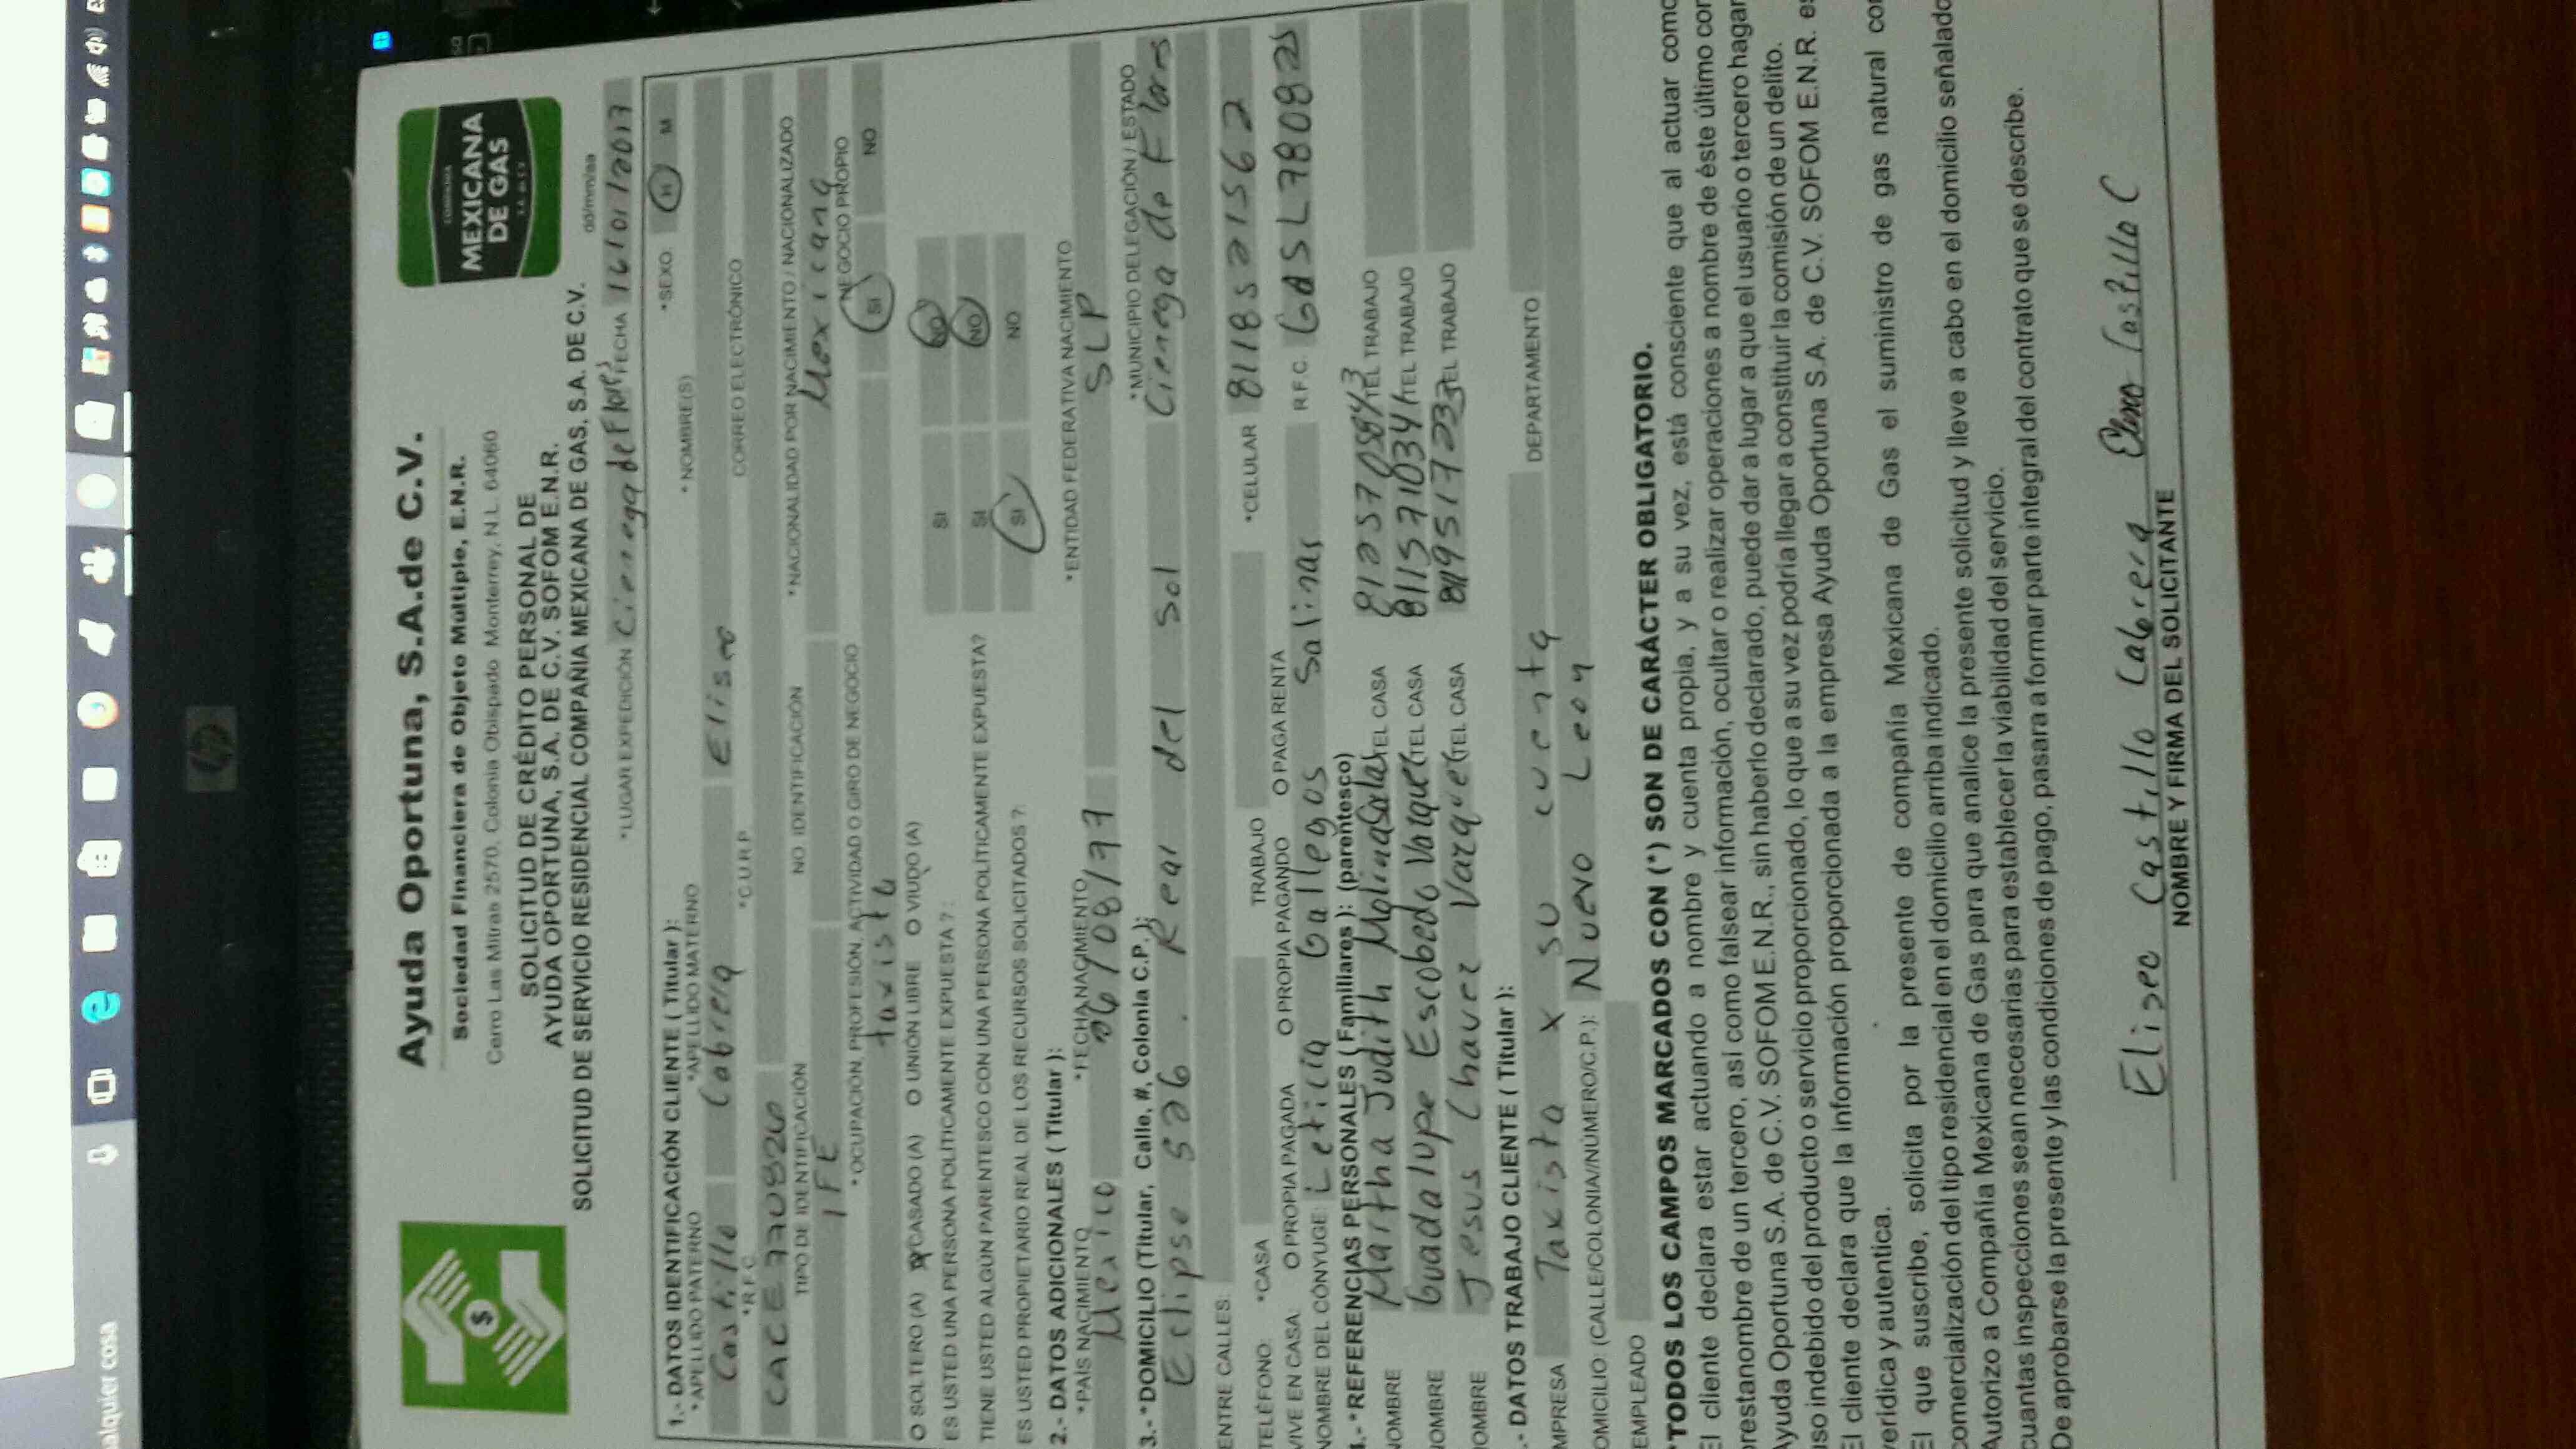 alquier cosa
hp
Ayuda Oportuna, S.A.de C.V.
Sociedad Financiera de Objeto Múltiple, E.N.R.
Cerro Las Mitras 2570, Colonia Obispado Monterrey, N.L. 64060
COMPAÑIA
MEXICANA
DE GAS
S.A. DE C.V.
SOLICITUD DE CRÉDITO PERSONAL DE
AYUDA OPORTUNA, S.A. DE C.V. SOFOM E.N.R.
SOLICITUD DE SERVICIO RESIDENCIAL COMPAÑIA MEXICANA DE GAS, S.A. DE C.V.
dd/mm/aa
*LUGAR EXPEDICIÓN Cienega de Flores FECHA 16/01/2017
1.- DATOS IDENTIFICACIÓN CLIENTE ( Titular ):
*APELLIDO PATERNO *APELLIDO MATERNO *NOMBRE(S) *SEXO: H M
Castillo Cabrera Eliseo
*R.F.C. *C.U.R.P CORREO ELECTRÓNICO
CACE770826
TIPO DE IDENTIFICACIÓN NO IDENTIFICACIÓN *NACIONALIDAD POR NACIMIENTO / NACIONALIZADO
IFE Mexicana
*OCUPACIÓN, PROFESIÓN, ACTIVIDAD O GIRO DE NEGOCIO NEGOCIO PROPIO
taxista SI NO
O SOLTERO (A) CASADO (A) O UNIÓN LIBRE O VIUDO (A)
ES USTED UNA PERSONA POLÍTICAMENTE EXPUESTA ? : SI NO
TIENE USTED ALGÚN PARENTESCO CON UNA PERSONA POLÍTICAMENTE EXPUESTA? SI NO
ES USTED PROPIETARIO REAL DE LOS RECURSOS SOLICITADOS ?: SI NO
2.- DATOS ADICIONALES ( Titular ):
*PAÍS NACIMIENTO *FECHA NACIMIENTO *ENTIDAD FEDERATIVA NACIMIENTO
Mexico 26/08/77 SLP
3.- *DOMICILIO (Titular, Calle, #, Colonia C.P. ): *MUNICIPIO DELEGACIÓN / ESTADO
Eclipse 526. Real del sol Cienega de Flores
ENTRE CALLES:
TELÉFONO: *CASA TRABAJO *CELULAR 8118521562
VIVE EN CASA: O PROPIA PAGADA O PROPIA PAGANDO O PAGA RENTA
NOMBRE DEL CÓNYUGE: Leticia Gallegos Salinas R.F.C. GASL780825
*REFERENCIAS PERSONALES ( Familiares ): (parentesco)
NOMBRE Martha Judith Molina Salas TEL CASA TEL TRABAJO
NOMBRE Guadalupe Escobedo Vazquez TEL CASA 8115710341 TEL TRABAJO
NOMBRE Jesus Chavez Vazquez TEL CASA TEL TRABAJO
.- DATOS TRABAJO CLIENTE ( Titular ):
MPRESA Taxista x su cuenta DEPARTAMENTO
OMICILIO: (CALLE/COLONIA/NÚMERO/C.P.): Nuevo Leon
EMPLEADO
*TODOS LOS CAMPOS MARCADOS CON (*) SON DE CARÁCTER OBLIGATORIO.
El cliente declara estar actuando a nombre y cuenta propia, y a su vez, está consciente que al actuar como
prestanombre de un tercero, así como falsear información, ocultar o realizar operaciones a nombre de éste último con
Ayuda Oportuna S.A. de C.V. SOFOM E.N.R., sin haberlo declarado, puede dar a lugar a que el usuario o tercero hagan
uso indebido del producto o servicio proporcionado, lo que a su vez podría llegar a constituir la comisión de un delito.
El cliente declara que la información proporcionada a la empresa Ayuda Oportuna S.A. de C.V. SOFOM E.N.R. es
verídica y autentica.
El que suscribe, solicita por la presente de compañía Mexicana de Gas el suministro de gas natural con
comercialización del tipo residencial en el domicilio arriba indicado.
Autorizo a Compañía Mexicana de Gas para que analice la presente solicitud y lleve a cabo en el domicilio señalado
cuantas inspecciones sean necesarias para establecer la viabilidad del servicio.
De aprobarse la presente y las condiciones de pago, pasara a formar parte integral del contrato que se describe.
Eliseo Castillo Cabrera Eliseo Castillo C
NOMBRE Y FIRMA DEL SOLICITANTE